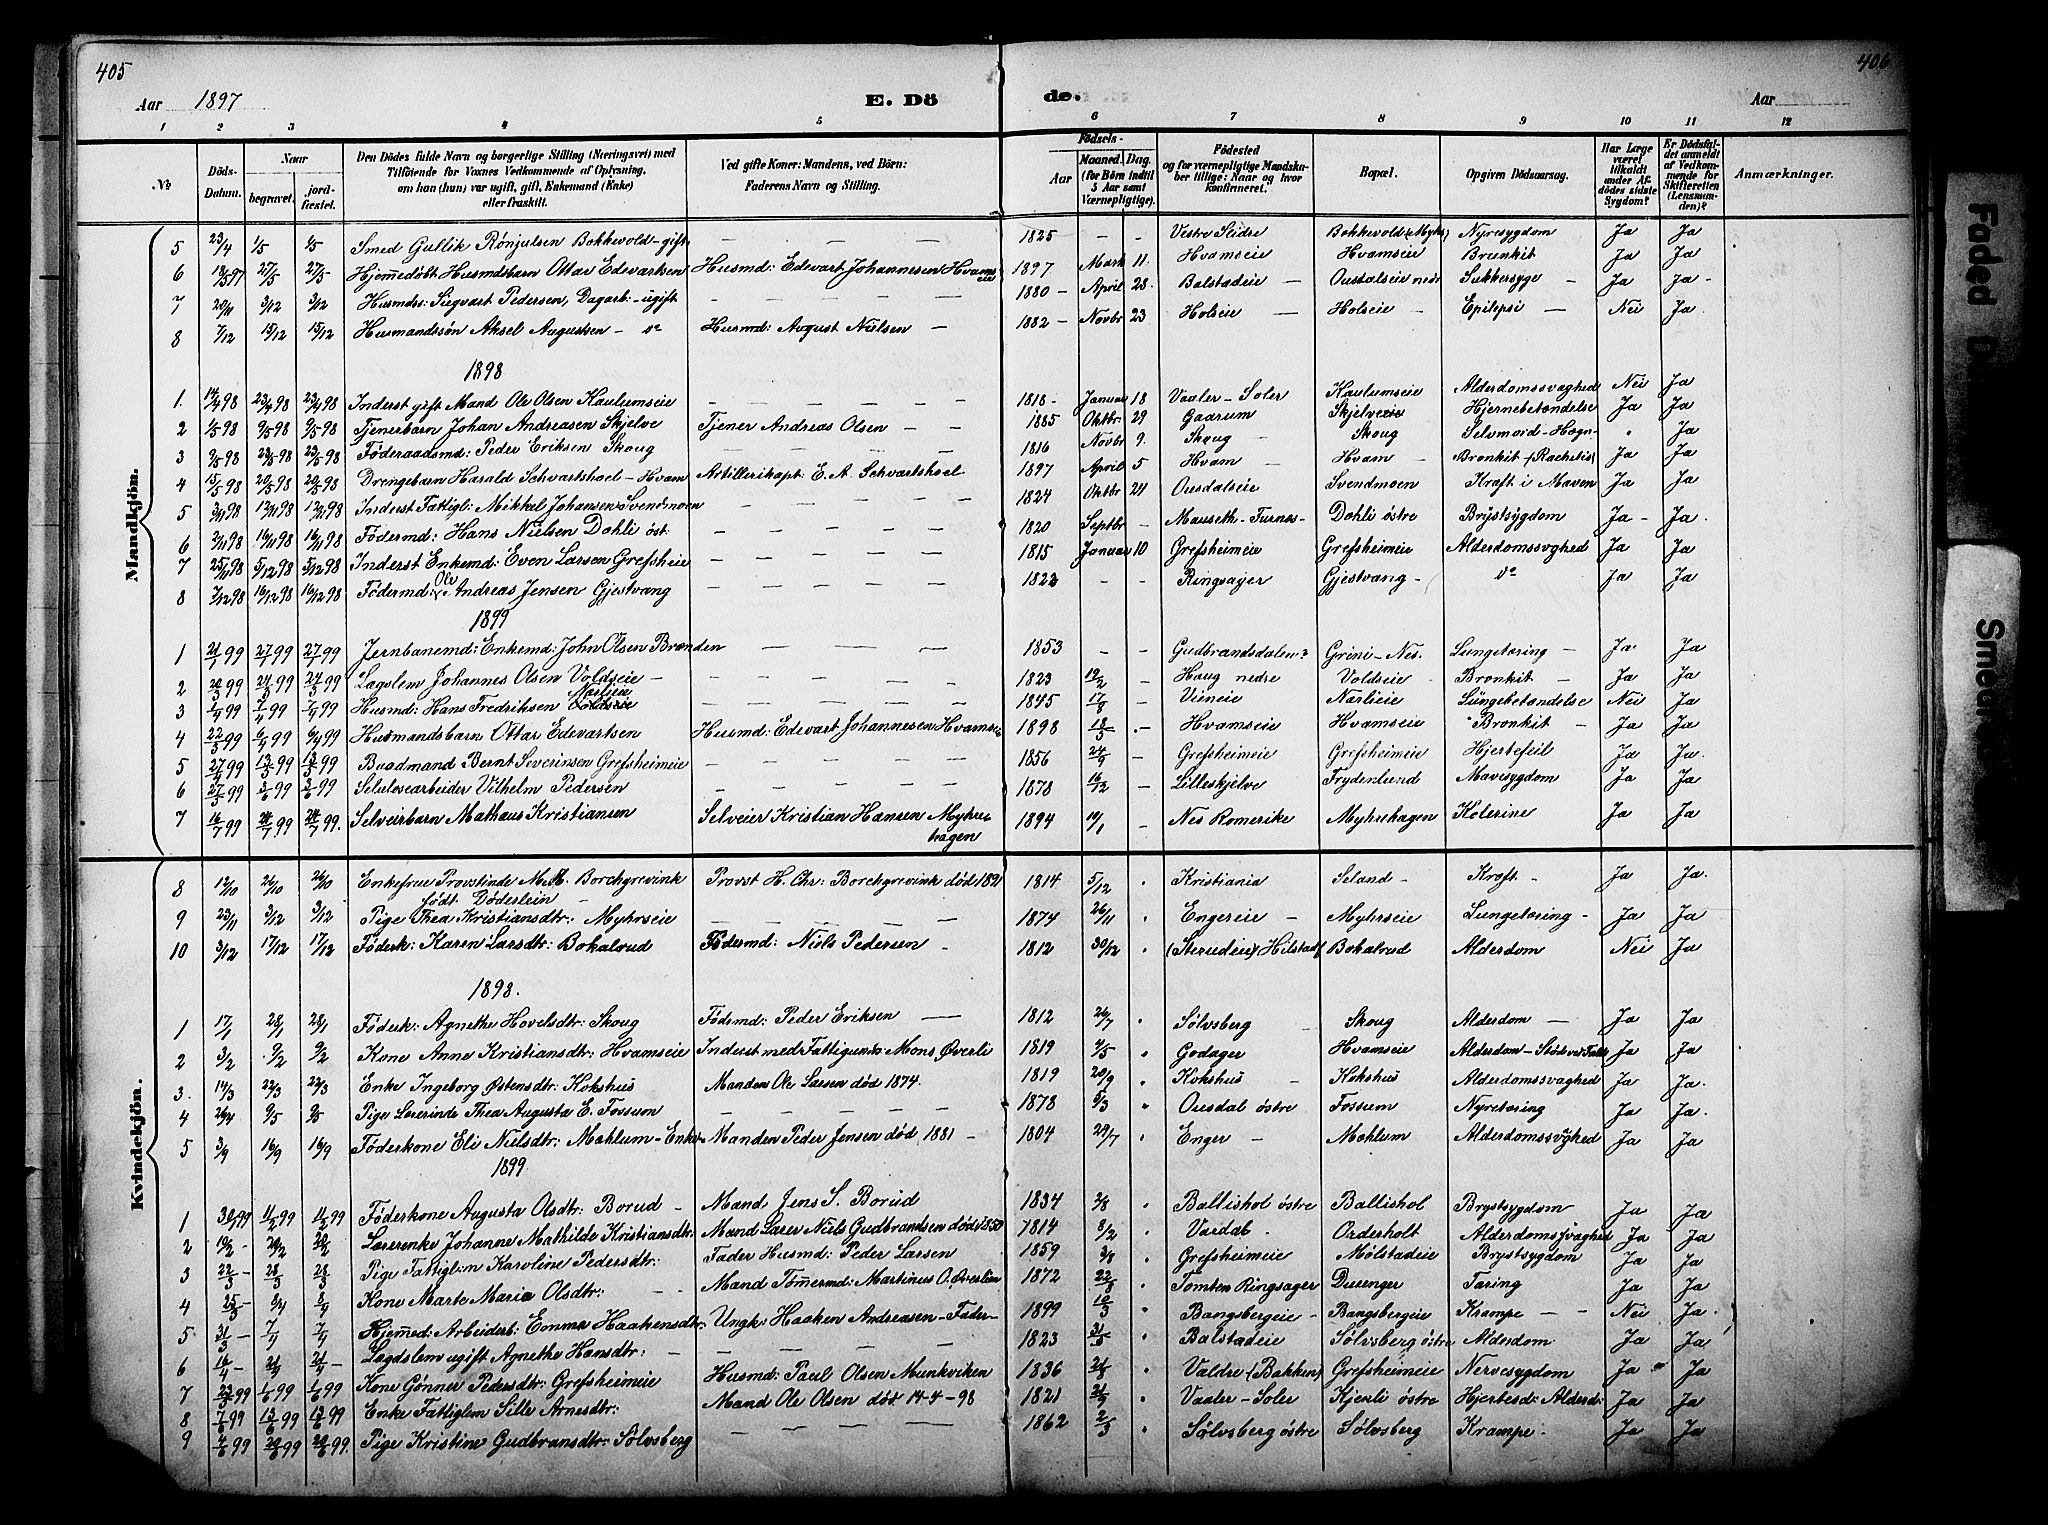 405
406
Aar 1897
E. Dö
de.
Aar
1 2 3 4 5 6 7 8 9 10 11 12
No
Döds-Datum.
Naar begravet. jordfæstet.
Den Dödes fulde Navn og borgerlige Stilling (Næringsvei) med Tilföiende for Voxnes Vedkommende af Oplysning, om han (hun) var ugift, gift, Enkemand (Enke) eller fraskilt.
Ved gifte Koner: Mandens, ved Börn: Faderens Navn og Stilling.
Födsels-
Aar Maaned. Dag. (for Börn indtil 5 Aar samt Værnepligtige).
Födested og for værnepligtige Mandskaber tillige: Naar og hvor konfirmeret.
Bopæl.
Opgiven Dödsaarsag.
Har Læge været tilkaldt under Afdödes sidste Sygdom?
Er Dödsfaldet anmeldt af Vedkommende for Skifteretten (Lensmanden)?
Anmærkninger.
Mandkjön.
5 23/4 1/5 1/5 Smed Gullik Rönjulsen Bokkevold - gift — — — 1825 - - Vestre Slidre Bokkevold (Myhr) Nyresygdom Ja Ja
6 18/5 97 27/5 27/5 Hjemmedöbt Husmdsbarn Ottar Edevartsen Husmd: Edevart Johannesen Hvamseie 1897 Marts 11. Hvamseie Hvamseie Bronkit Ja Ja
7 20/11 3/12 3/12 Husmds: Sigvart Pedersen, Dagarb: - ugift — — — 1880 - April 28. Balstadeie - Ousdalseie nedr Sukkersyge - Ja Ja -
8 7/12 15/12 15/12 Husmandssön Aksel Augustsen - do Husmd: August Nielsen — 1882 - Novbr 23 Holseie — Holseie - Epilepsi — Nei Ja
1898
1. 14/4 98 23/4 98 23/4 98 Inderst gift Mand Ole Olsen Kaulumseie — — — 1818 - Januar 18 Vaaler - Soler Kaulumseie Alderdomssvaghed Nei Ja
2 1/5 98 9/5 98 9/5 98 Tjenerbarn Johan Andreasen Skjelve Tjener Andreas Olsen — — 1885 Oktbr. 29 Gaarum Skjelveeie Hjernebetændelse Ja Ja
3 9/5 98 23/5 98 23/5 98 Föderaadsmd: Peder Eriksen Skoug — — — 1816 Novbr 9. Skoug - Skoug Selvmord - Hægn- " Ja
4 15/5 98 20/5 98 20/5 98 Drengebarn Harald Schvartshoel - Hvam Artillerikapt: E. A. Schvartshoel 1897 April 5 Hvam - Hvam - Bronkit (Rachetis) Ja Ja
5 3/11 98 12/11 98 12/11 98 Inderst Fattigl: Mikkel Johansen Svendmoen — — — 1824 Oktbr 24 Ousdalseie Svendmoen Kræft i Maven Ja Ja
6 2/11 98 16/11 98 16/11 98 Födermd: Hans Nielsen Dohli öst: — — — 1820 Septbr - Mauseth - Furnes- Dohli östre Brystsygdom Ja - Ja.
7 25/11 98 5/12 98 5/12 98 Inderst Enkemd: Even Larsen Grefsheie — — — 1815 Januar 10 Grefsheimeie Grefsheimeie Alderdomssvghed Ja Ja
8 7/12 98 16/12 98 16/12 98 Födermd: Ole Andreas Jensen Gjestvang — — — 1823 - - Ringsager Gjestvang - do Ja Ja
1899
1 21/1 99 27/1 99 27/1 99 Jernbanemd: Enkemd: John Olsen Brænden — — — 1853 - - Gudbrandsdalen? Grini - Nes. Lungetæring - Ja. Ja
2 20/3 99 24/3 99 24/3 99 Lægslem Johannes Olsen Voldseie - — — — 1823 19/2 - Haug nedre Voldseie - Bronkit - Ja Ja
3 1/4 99 7/4 99 7/4 99 Husmd: Hans Fredriksen Voldseie Narlieie — — — 1845 17/8 - Vieneie Narlieie Lungebetændelse Nei Ja
4 22/3 99 6/4 99 6/4 99 Husmandsbarn Ottar Edevartsen Husmd: Edevart Johannesen Hvamseie 1898 18/3 .- Hvamseie Hvamseie " Bronkit - Ja Ja
5 27/4 99 13/5 99 13/5 99 Baadmand Bernt Severinsen Grefsheimeie — — — 1856 24/9 - Grefsheimeie Grefsheimeie Hjertefeil Ja Ja.
6 27/5 99 3/6 99 3/6 99 Selulosearbeider Vilhelm Pedersen — — — 1878 16/12 - Lilleskjelve Frydenlund Mavesygdom Ja Ja
7 16/7 99 24/7 99 24/7 99. Selveirbarn Mathæus Kristiansen Selveier Kristian Hansen Myhrehagen 1894 19/1 - Nes Romerike Myhrehagen Kolerine Ja Ja
Kvindekjön.
8 12/10 26/10 26/10 Enkefrue Provstinde M. M. Borchgrevink födt Döderlein - Provst H. Chr: Borchgrevink död 1891 1814 5/12 " Kristiania Seland - Kræft - Ja Ja
9 23/11 3/12 3/12 Pige Thea Kristiansdtr: Myhrseie — — — 1874 26/11 " Engereie - Myhrseie Lungetæring - Ja Ja
10 3/12 17/12 17/12 Föderk: Karen Larsdtr: Bokalrud Födermd: Niels Pedersen - 1812 30/12 " (Sterudeie) Hilstad Bokalrud Alderdom Nei Ja
1898.
1 17/1 28/1 28/1 Föderk: Agnethe Hovelsdtr: Skoug Födsmd: Peder Eriksen — 1812 26/7 " Sölvsberg - Skoug Alderdom — Ja Ja
2 3/2 9/2 9/2 Kone Anne Kristiansdtr: Hvamseie Inderst med Fattigunds: Mons Øverli 1819 4/5 " Godager Hvamseie Alderdom - Ja Ja
3. 14/3 22/3 22/3 Enke Ingeborg Østensdtr: Kokshus Manden Ole Larsen död 1874. 1819 20/9 " Kokshus - Kokshus Alderdomssvaghed Ja Ja.
4 26/4 9/5 9/5 Pige Lærerinde Thea Augusta E. Fossum — — — 1878 5/3 " Ousdal östre Fossum Nyretæring Ja Ja.
5 3/9 16/9 16/9 Föderkone Eli Nielsdtr: Mohlum - Enke Manden Peder Jensen död 1881 - 1804 29/7 " Enger - Mohlum Alderdomssvghed Ja Ja
1899
1 30/1 99 11/2 99 11/2 99 Föderkone Augusta Olsdtr: Borud - Mand Jens S. Borud 1834 2/8 " Ballishol östre Ballishol Brystsygdom Ja Ja
2 12/2 - 20/2 20/2 Lærerenke Johanne Mathilde Kristiansdtr: Mand Lærer Niels Gudbrandsen död 1850 1814 8/2 " Vardal. Orderholt Alderdomssvaghed Ja Ja
3 22/3 - 28/3 28/3 Pige Fattigl:m Karoline Pedersdtr: Fader Husmd: Peder Larsen 1859 3/8 " Grefsheimeie Mölstadeie Brystsygdom Ja Ja
4 25/3 - 8/4 8/4 Kone Marte Marie Olsdtr: — Mand Tömermd: Martinus O. Øverlien 1872 22/8 " Tomten Ringsager Durenger Tæring Ja Ja
5. 31/3 - 7/4 7/4 Hjemmed: Arbeiderb: Emma Haakensdtr: Ungk: Haaken Andreasen - Fader - 1899 10/3 " Bangsbergeie - Bangsbergeie Krampe - Nei Ja.
6 16/4 - 21/4 21/4 - Lagdslem ugift Agnethe Hansdtr: - — — — 1823 31/5 " Balstadeie Sölvsberg östre Alderdom Ja Ja
7 23/5 99 1/6 99 1/6 99 Kone Gönner Pedersdtr: Grefsheimeie Husmd: Paul Olsen Munkviken 1836 21/8 " Valdre (Bakken) Grefsheimeie Nervesygdom Ja Ja
8 7/6 99 13/6 99 13/6 99 Enke Fattiglem Sille Arnesdtr: Mand Ole Olsen död 14-4-98 1821 21/9 " Vaaler - Soler Kjerli östre Hjertesd: Alderd: Ja Ja
9 4/6 99 20/6 99 20/6 99. Pige Kristine Gudbransdtr: Sölvsberg — — — 1862 2/3 " Sölvsberg östre Sölvsberg Krampe. Ja Ja
Faded